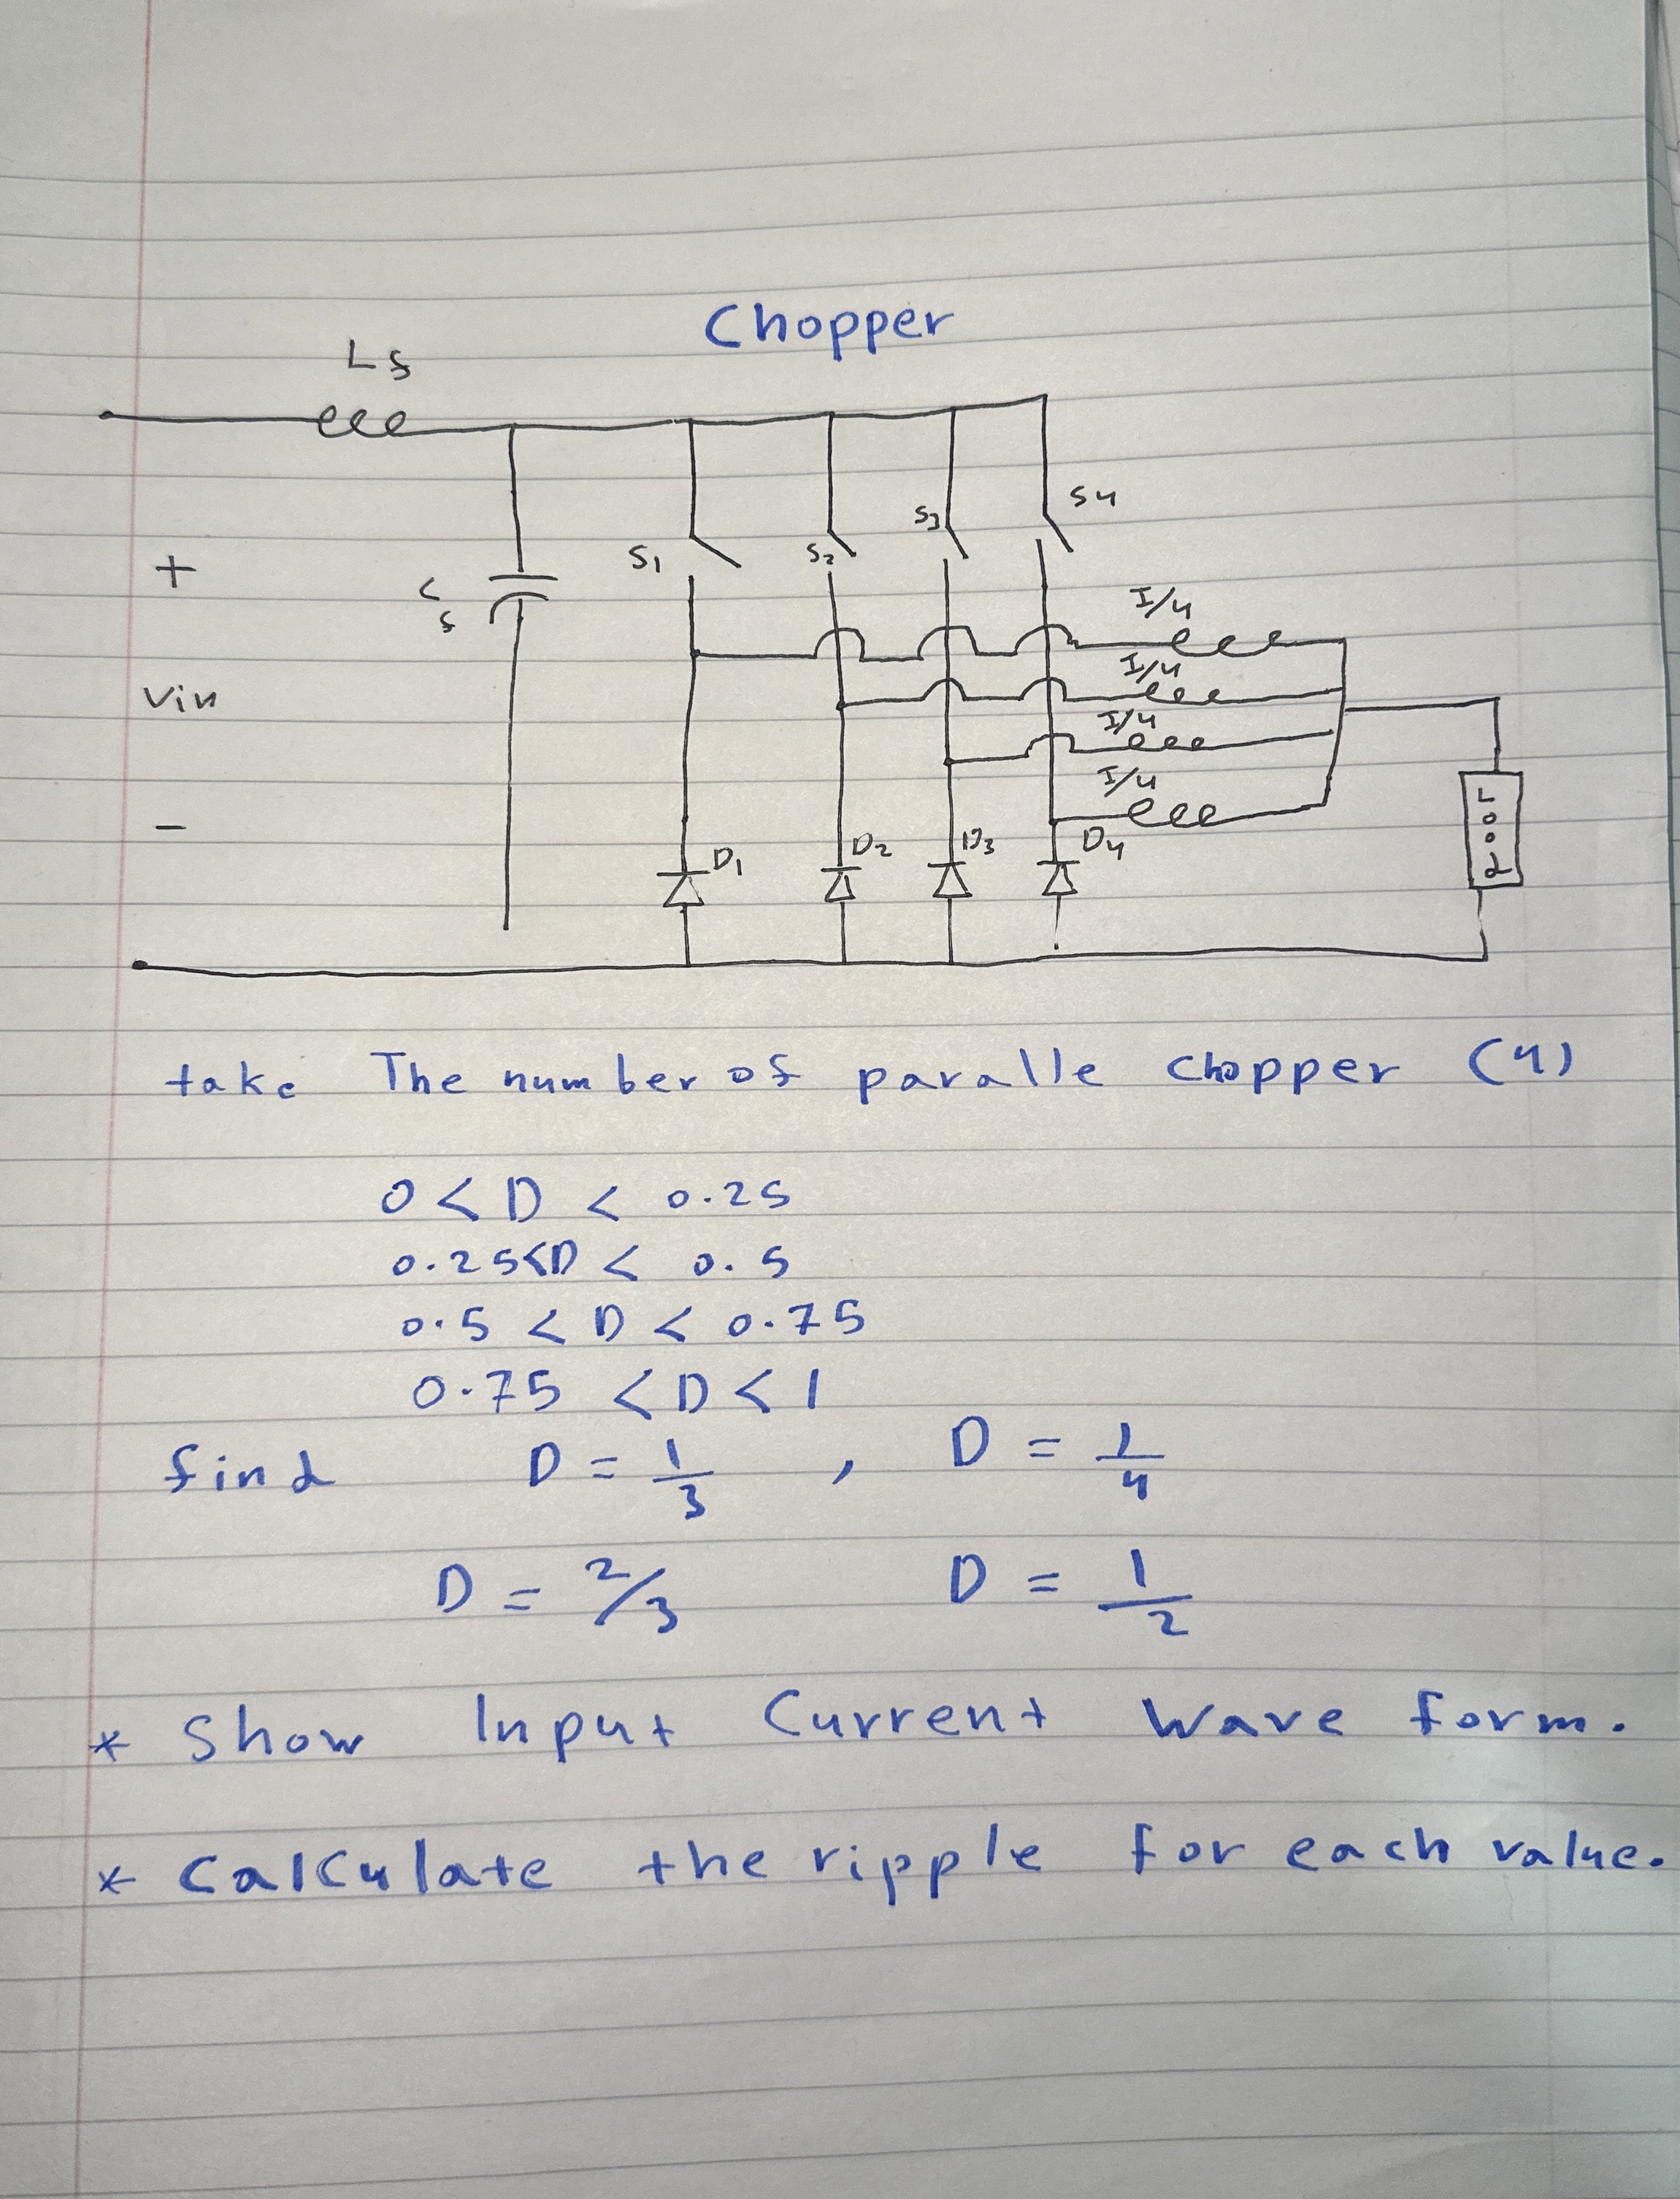 Chopper
Lf
S4
S3
S1
S2
+
Cf
I/4
I/4
Vin
I/4
I/4
-
D1
D2
D3
D4
Load
take The number of paralle chopper (4)
0 < D < 0.25
0.25<D < 0.5
0.5 < D < 0.75
0.75 < D < 1
find D = 1/3 , D = 1/4
D = 2/3 D = 1/2
* Show Input Current Wave form.
* Calculate the ripple for each value.